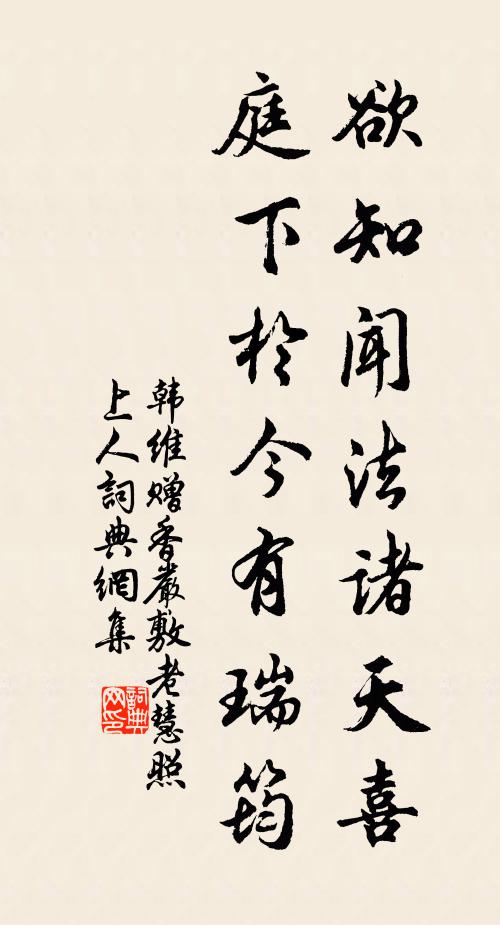 欲知闻法诸天喜
庭下於今有瑞筠
韩维赠香严敷老慧照
上人詞典網集
詞典
网印